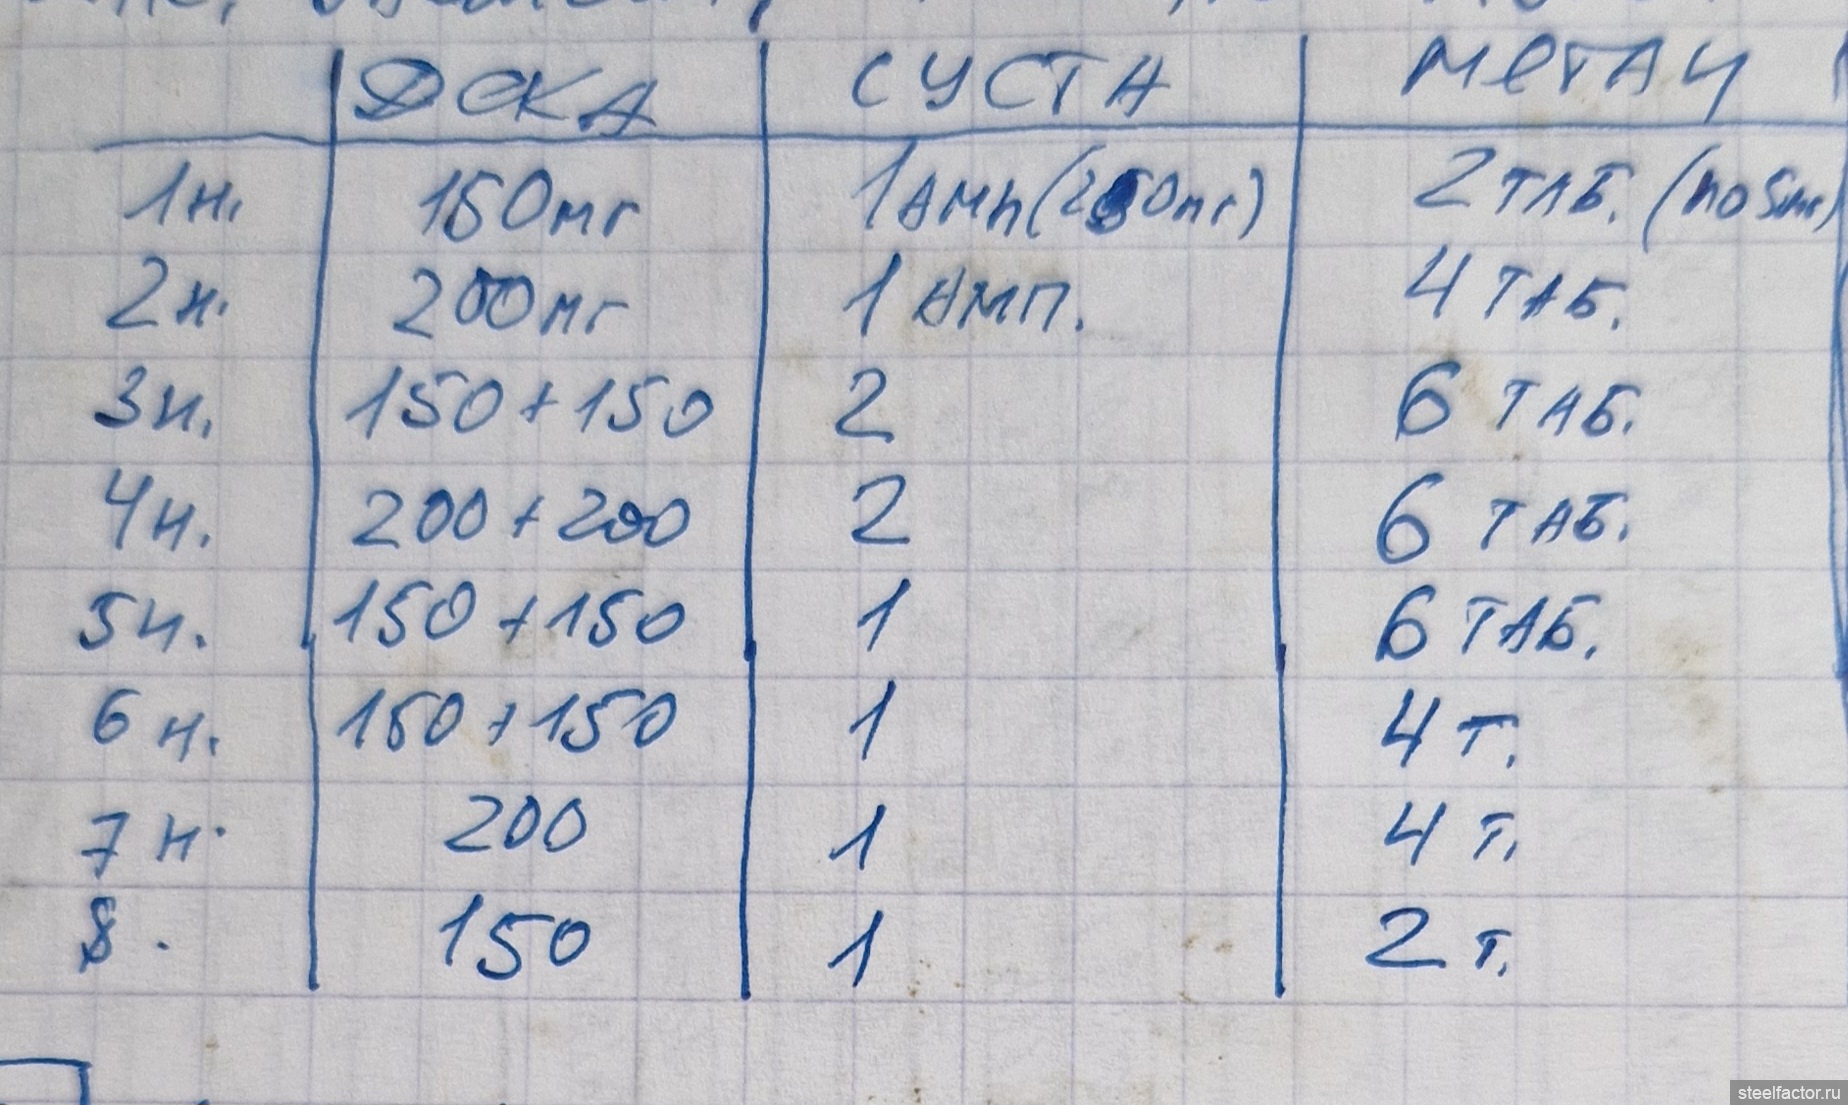 ДЕКА СУСТА МЕТАЧ
1н. 150мг 1 АМП (250мг) 2 ТАБ. (по 5мг)
2н. 200мг 1 АМП. 4 ТАБ.
3н. 150+150 2 6 ТАБ.
4н. 200+200 2 6 ТАБ.
5н. 150+150 1 6 ТАБ.
6н. 150+150 1 4 Т.
7н. 200 1 4 Т.
8. 150 1 2 Т.
steelfactor.ru